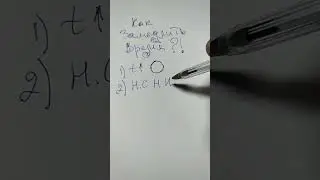 Как
замедлить
время?!
1) t↑ ○
2) Н.С Н И